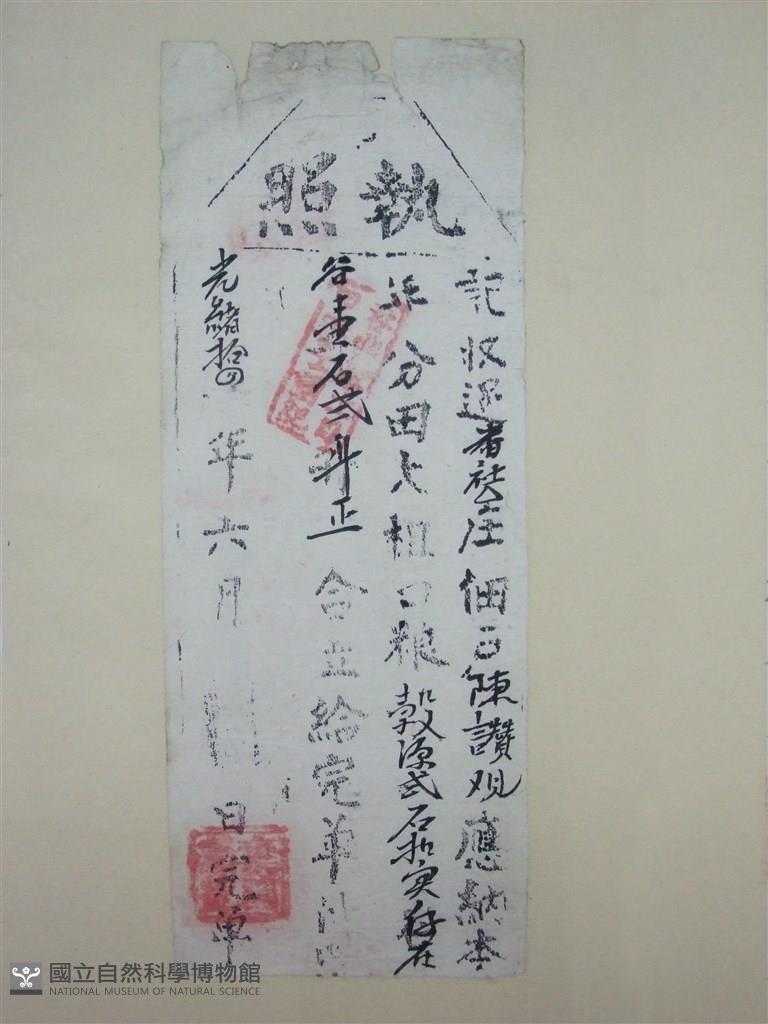 執照
記收過番社庄佃戶陳讚观應納本
年分田大租口粮穀源弍石扣实存在
谷壹石弍斗正合立給完單
光緒拾四年六月 日完單
國立自然科學博物館
NATIONAL MUSEUM OF NATURAL SCIENCE